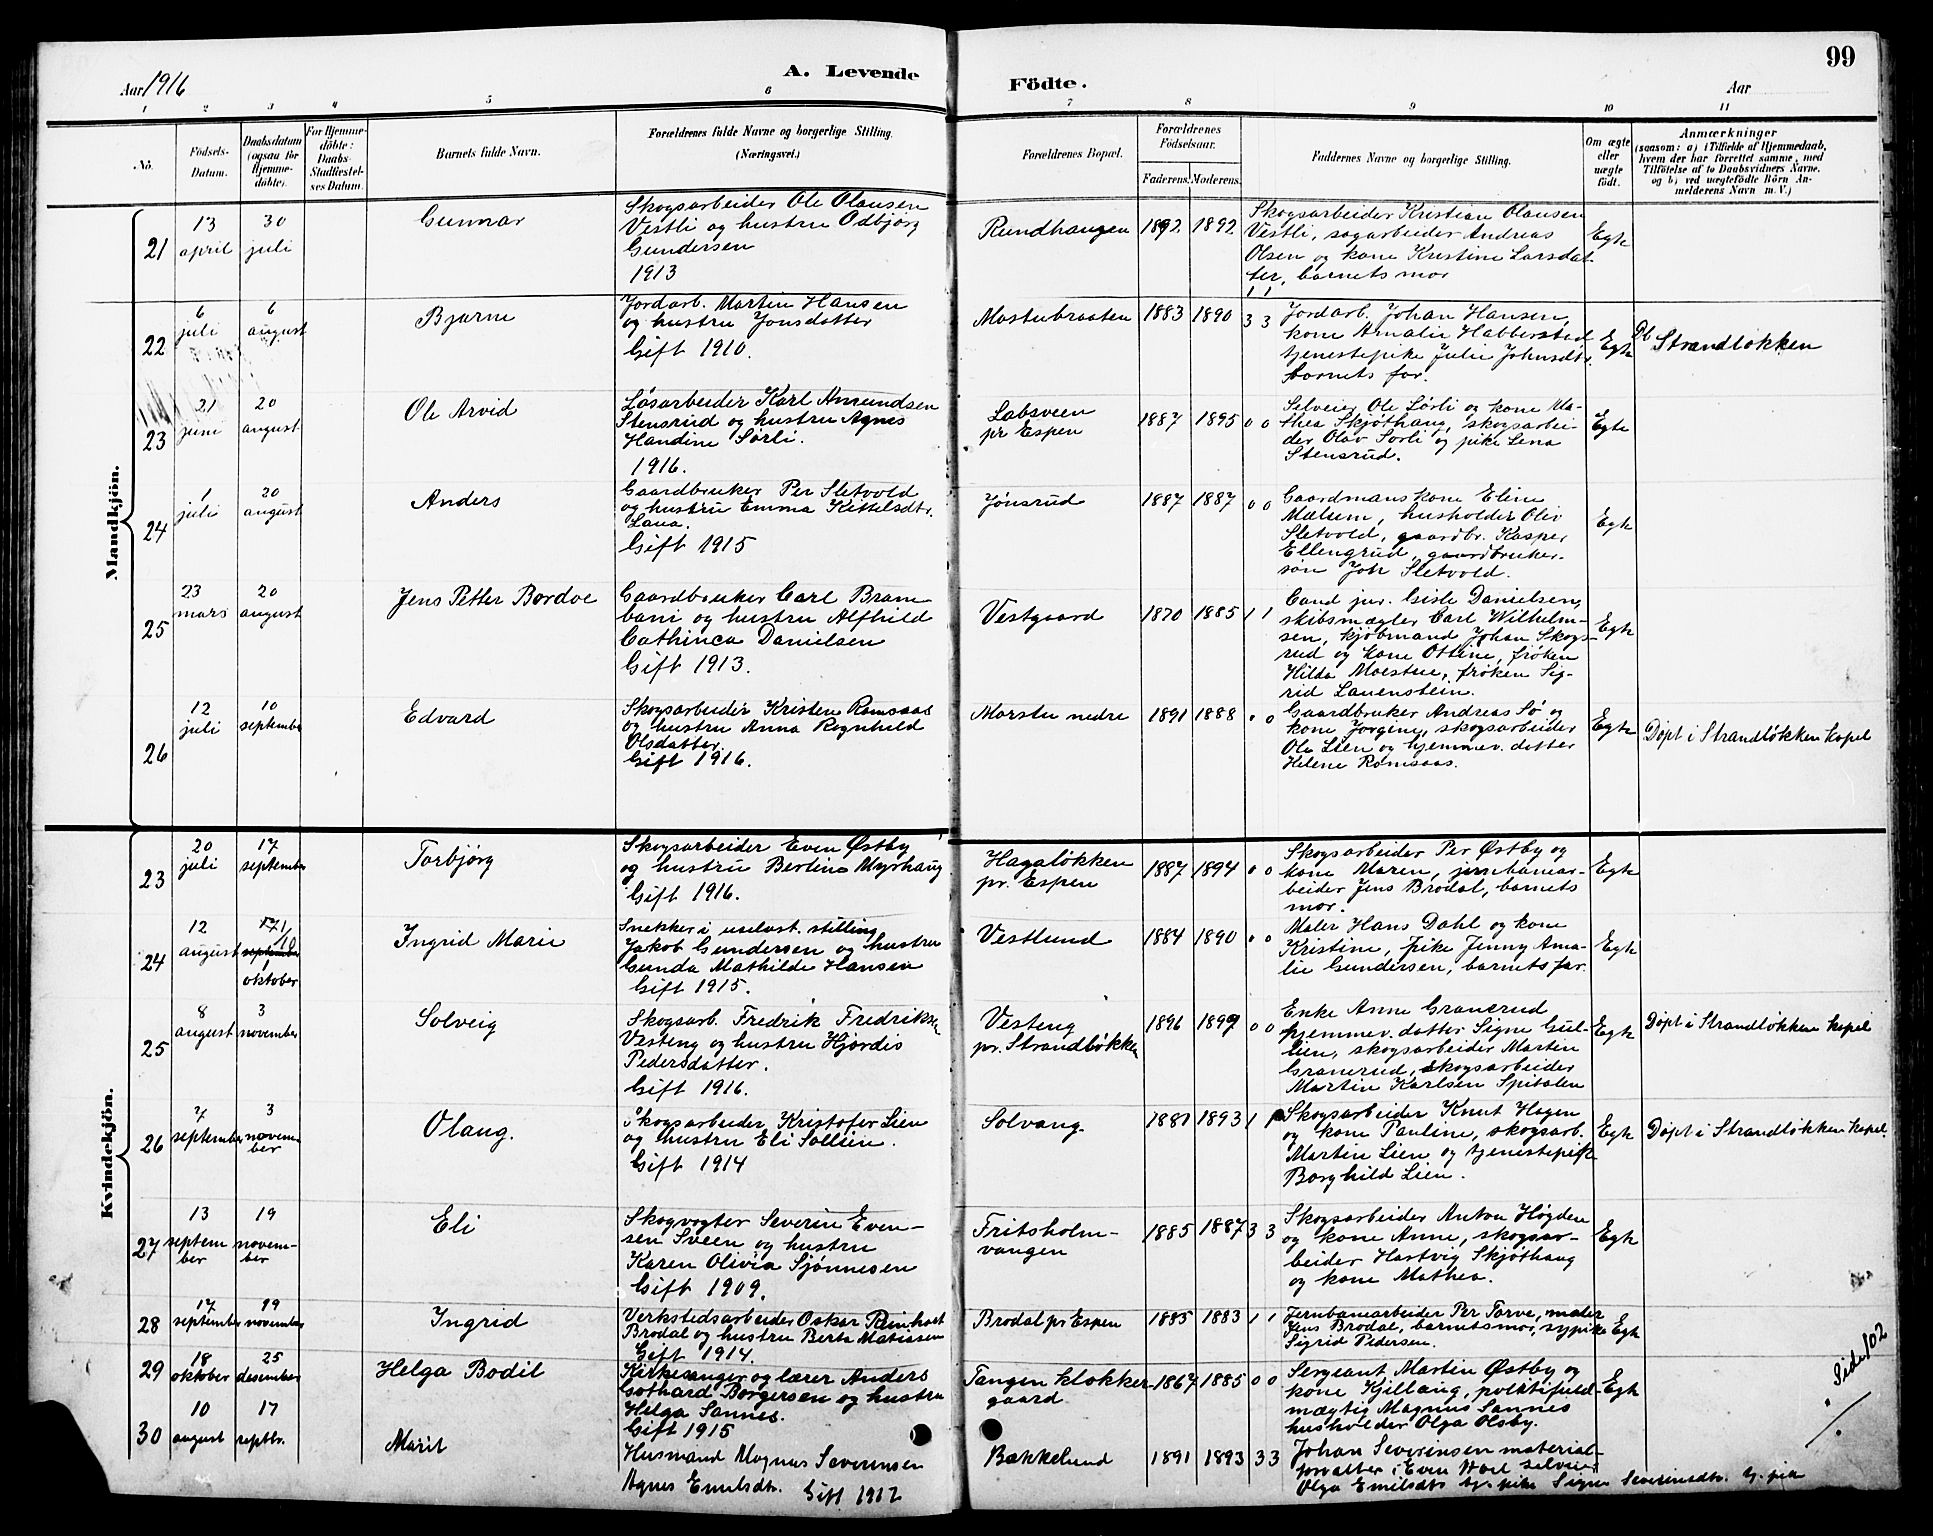 Aar 1916
A. Levende
Födte.
Aar
99
1 2 3 4 5 6 7 8 9 10 11
No.
Födsels-
Datum.
Daabsdatum
(ogsaa for
Hjemme-
döbte).
For Hjemme-
döbte:
Daabs-
Stadfæstel-
ses Datum.
Barnets fulde Navn.
Forældrenes fulde Navne og borgerlige Stilling.
(Næringsvei.)
Forældrenes Bopæl.
Forældrenes
Födselsaar.
Faderens. Moderens.
Faddernes Navne og borgerlige Stilling.
Om ægte
eller
uægte
födt.
Anmærkninger
(saasom: a) i Tilfælde af Hjemmedaab,
hvem der har forrettet samme, med
Tilföielse af to Daabsvidners Navne.
og b) ved uægtefödte Börn An-
melderens Navn m. V.)
Mandkjön.
21
13
april
30
juli
Gunnar
Skogsarbeider Ole Olausen
Vestli og hustru Odbjørg
Gundersen
1913
Rundhaugen
1892
1892
Skogsarbeider Kristian Olausen
Vestli, sagarbeider Andreas
Olsen og kone Kristine Larsdat-
ter, barnets mor
1 1
Egte
22
6
juli
6
august
Bjarne
Jordarb. Martin Hansen
og hustru Jonsdatter
Gift 1910.
Mostubraaten
1883
1890
3 3
Jordarb. Johan Hansen,
kone Amalie Habberstad
tjenestepike Julie Johnsdtr.
barnets far.
Egte
Strandløkken
23
21
juni
20
august
Ole Arvid
Løsarbeider Karl Amundsen
Stensrud og hustru Agnes
Handine Sørli.
1916.
Labsveen
pr Espen
1887
1895
0 0
Selveier Ole Sørli og kone Ma-
thea Skjøthaug, skogsarbei-
der Olav Sørli og pike Lena
Stensrud.
Egte
24
1
juli
20
august
Anders
Gaardbruker Per Sletvold
og hustru Emma Kittelsdtr.
Laua.
Gift 1915
Jønsrud
1887
1887
0 0
Gaardmanskone Eline
Mælum, husholder Oliv
Sletvold, gaardbr. Kasper
Ellengrud, gaardbruker-
søn Joh Sletvold.
Egte
25
23
mars
20
august
Jens Petter Bordoe
Gaardbruker Carl Bram
bani og hustru Alfhild
Cathinca Danielsen
Gift 1913.
Vestgaard
1870
1885
1 1
Cand jur. Gisle Danielsen,
skibsmægler Carl Wilhelm-
sen, kjøbmand Johan Skogs-
rud og kone Ottine, frøken
Hilda Moestue, frøken Sig-
rid Lauenstein.
Egte
26
12
juli
10
september
Edvard
Skogsarbeider Kristen Romsaas
og hustru Anna Rognhild
Olsdatter.
Gift 1916.
Morstu nedre
1891
1888
0 0
Gaardbruker Andreas Sø og
kone Jørgine, skogsarbeider
Ole Lien og hjemmev. datter
Helene Rømsaas.
Egte
Døpt i Strandløkken kapel
Kvindekjön.
23
20
juli
17
september
Torbjørg
Skogsarbeider Even Østby
og hustru Berline Myrhaug
Gift 1916.
Hagaløkken
pr. Espen
1887
1894
0 0
Skogsarbeider Per Østby og
kone Maren, jernbanear-
beider Jens Brodal, barnets
mor.
Egte
24
12
august
17
september
1
oktober
Ingrid Marie
Snekker i uselvst. stilling
Jakob Gundersen og hustru
Gunda Mathilde Hansen
Gift 1915.
Vestlund
1884
1890
0 0
Maler Hans Dahl og kone
Kristine, pike Jenny Ama-
lie Gundersen, barnets far.
Egte
25
8
august
3
november
Solveig
Skogsarb. Fredrik Fredriksen
Vesteng og hustru Hjørdis
Pedersdatter.
Gift 1916.
Vesteng
pr. Strandløkken
1896
1899
0 0
Enke Anne Granerud
hjemmev. datter Signe Gul-
lien, skogsarbeider Martin
Granerud, skogsarbeider
Martin Karlsen Spitalen
Egte
Døpt i Strandløkken kapel
26
7
september
3
novem-
ber
Olaug.
Skogsarbeider Kristofer Lien
og hustru Eli Sollien.
Gift 1914
Solvang.
1881
1893
1 1
Skogsarbeider Knut Hagen
og kone Pauline, skogsarb.
Martin Lien og tjenestepike
Borghild Lien.
Egte
Døpt i Strandløkken kapel.
27
13
septem
ber
19
novem-
ber
Eli
Skogvogter Severin Even-
sen Sveen og hustru
Karen Olivia Sjønnesen
Gift 1909.
Fritsholm-
vangen
1885
1887
3 3
Skogsarbeider Anton Høgden
og kone Anne, skogsar-
beider Hartvig Skjøthaug
og kone Mathea.
Egte
28
17
september
19
november
Ingrid
Verkstedsarbeider Oskar Reinholt
Brodal og hustru Berta Matissen
Gift 1914.
Brodal pr Espen
1885
1883
1 1
Jernbanearbeider Per Torve, maler
Jens Brodal, barnets mor, sypike
Sigrid Pedersen.
Egte
29
18
oktober
25
desember
Helga Bodil
Kirkesanger og lærer Anders
Gothard Borgersen og hustru
Helga Sannes.
Gift 1915
Tangen klokker
gaard
1867
1885
0 0
Sergeant Martin Østby og
kone Kjellaug, politifuld-
mægtig Magnus Sannes
husholder Olga Olsby.
Egte
30
10
august
17
septbr.
Marit
Husmand Magnus Severinsen
Agnes Emilsdtr. Gift 1912
Bækkelund
1891
1893
3 3
Johan Severinsen material-
forvalter, Even Hoel selveier
Olga Emilsdtr tj. pike Signe Severinsdtr. tj. pike
Side 102